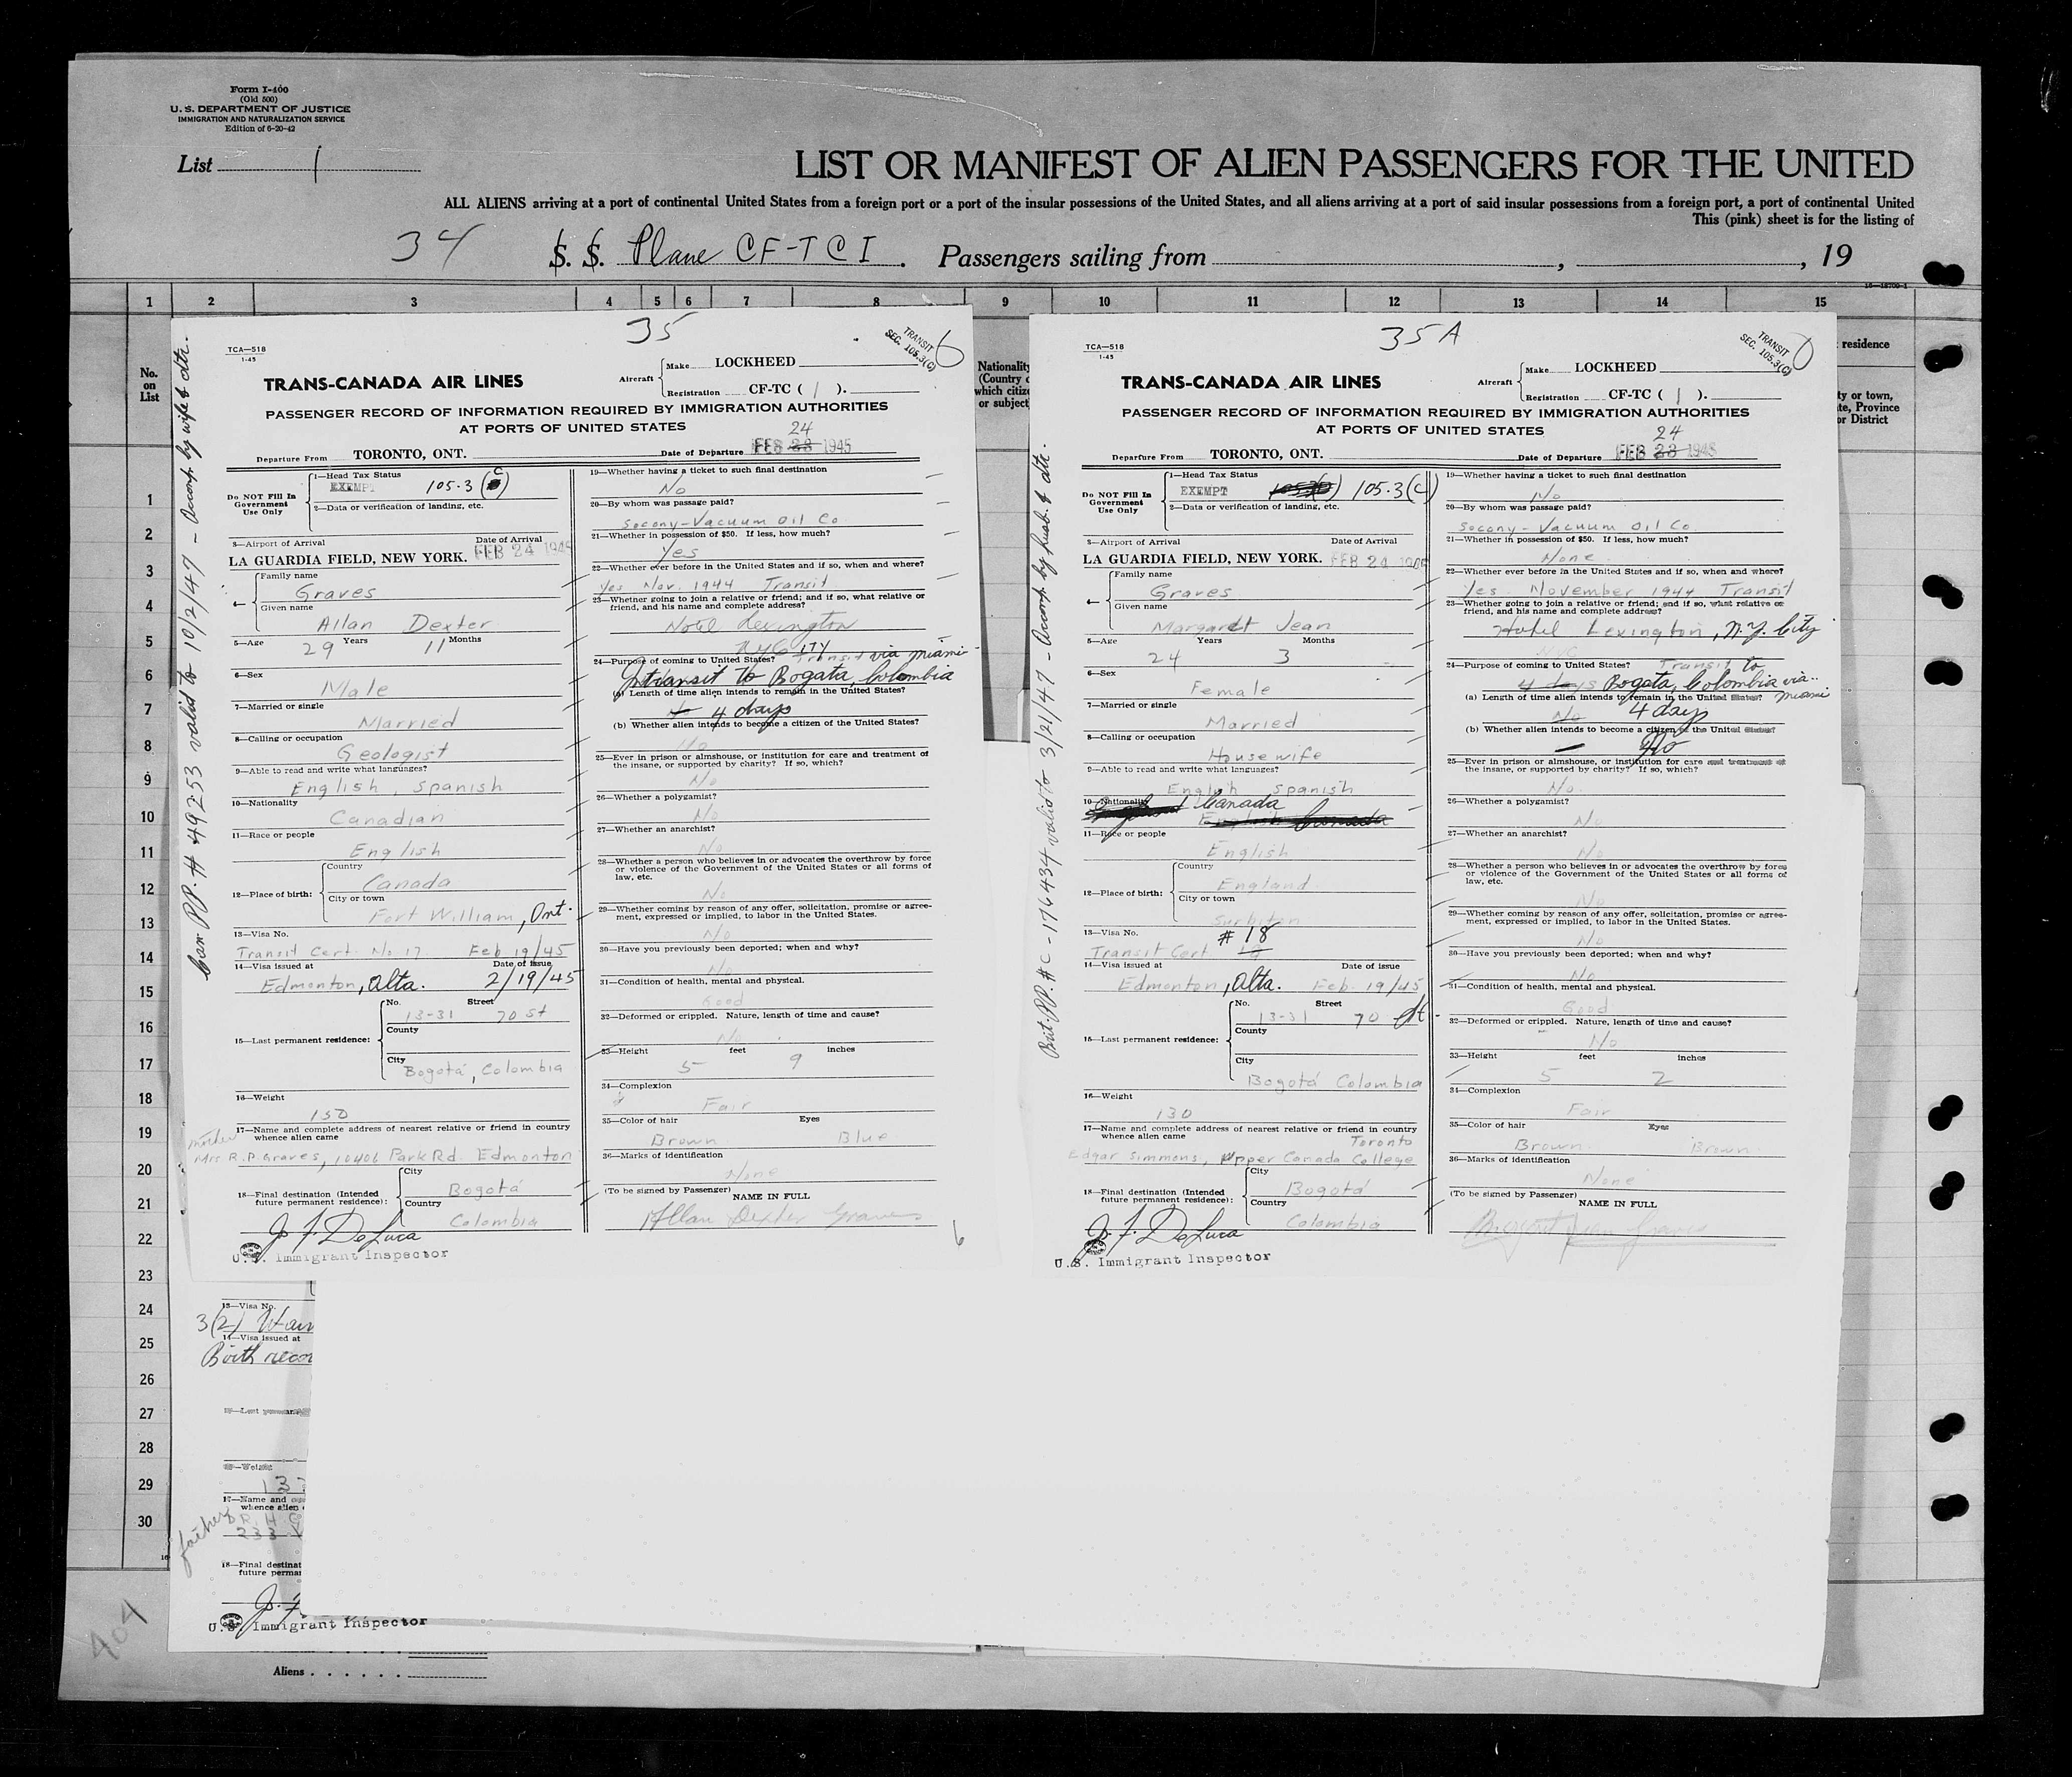 Form I-400
(Old 500)
U. S. DEPARTMENT OF JUSTICE
IMMIGRATION AND NATURALIZATION SERVICE
Edition of 6-20-42
List 1
LIST OR MANIFEST OF ALIEN PASSENGERS FOR THE UNITED
ALL ALIENS arriving at a port of continental United States from a foreign port or a port of the insular possessions of the United States, and all aliens arriving at a port of said insular possessions from a foreign port, a port of continental United
This (pink) sheet is for the listing of
34 S. S. Plane CF-TCI. Passengers sailing from , , 19
1 2 3 4 5 6 7 8 9 10 11 12 13 14 15
No.
on
List
Nationality
(Country
which citiz
or subject
residence
ty or town,
te, Province
or District
1
2
3
4
5
6
7
8
9
10
11
12
13
14
15
16
17
18
19
20
21
22
23
24
25
26
27
28
29
30
35
TRANSIT
SEC. 105.3(C)
6
TCA—518
1-45
TRANS-CANADA AIR LINES
Aircraft
Make LOCKHEED
Registration CF-TC ( 1 ).
PASSENGER RECORD OF INFORMATION REQUIRED BY IMMIGRATION AUTHORITIES
AT PORTS OF UNITED STATES
24
Departure From TORONTO, ONT. Date of Departure FEB 23 1945
Can PP. # 49253 valid to 10/2/47 - Accomp. by wife & dtr.
Do NOT Fill In
Government
Use Only
1—Head Tax Status
EXEMPT 105.3 (C)
2—Data or verification of landing, etc.
3—Airport of Arrival Date of Arrival
LA GUARDIA FIELD, NEW YORK. FEB 24 1945
4—
Family name
Graves
Given name
Allan Dexter
5—Age 29 Years 11 Months
6—Sex
Male
7—Married or single
Married
8—Calling or occupation
Geologist
9—Able to read and write what languages?
English, Spanish
10—Nationality
Canadian
11—Race or people
English
12—Place of birth:
Country
Canada
City or town
Fort William, Ont.
13—Visa No.
Transit Cert. No 17 Feb 19/45
14—Visa issued at Date of issue
Edmonton, Alta. 2/19/45
15—Last permanent residence:
No. Street
13-31 70 St
County
City
Bogotá, Colombia
16—Weight
150
17—Name and complete address of nearest relative or friend in country
whence alien came
mother
Mrs R.P. Graves, 10406 Park Rd. Edmonton
18—Final destination (Intended
future permanent residence):
City
Bogotá
Country
Colombia
J. F. DeLuca
U.S. Immigrant Inspector
19—Whether having a ticket to such final destination
No
20—By whom was passage paid?
Socony-Vacuum Oil Co
21—Whether in possession of $50. If less, how much?
Yes
22—Whether ever before in the United States and if so, when and where?
Yes Nov. 1944 Transit
23—Whether going to join a relative or friend; and if so, what relative or
friend, and his name and complete address?
Hotel Lexington
NYCITY
24—Purpose of coming to United States? Transit via Miami
Intransit to Bogata, Colombia
(a) Length of time alien intends to remain in the United States?
4 days
(b) Whether alien intends to become a citizen of the United States?
No
25—Ever in prison or almshouse, or institution for care and treatment of
the insane, or supported by charity? If so, which?
No
26—Whether a polygamist?
No
27—Whether an anarchist?
No
28—Whether a person who believes in or advocates the overthrow by force
or violence of the Government of the United States or all forms of
law, etc.
No
29—Whether coming by reason of any offer, solicitation, promise or agree-
ment, expressed or implied, to labor in the United States.
No
30—Have you previously been deported; when and why?
No
31—Condition of health, mental and physical.
Good
32—Deformed or crippled. Nature, length of time and cause?
No
33—Height feet inches
5 9
34—Complexion
Fair
35—Color of hair Eyes
Brown Blue
36—Marks of identification
None
(To be signed by Passenger) NAME IN FULL
Allan Dexter Graves
6
35A
TRANSIT
SEC. 105.3(C)
TCA—518
1-45
TRANS-CANADA AIR LINES
Aircraft
Make LOCKHEED
Registration CF-TC ( 1 ).
PASSENGER RECORD OF INFORMATION REQUIRED BY IMMIGRATION AUTHORITIES
AT PORTS OF UNITED STATES
24
Departure From TORONTO, ONT. Date of Departure FEB 23 1945
Brit. PP. # C-176434 valid to 3/21/47 - Accomp. by husb. & dtr.
Do NOT Fill In
Government
Use Only
1—Head Tax Status
EXEMPT 105.3(C)
2—Data or verification of landing, etc.
3—Airport of Arrival Date of Arrival
LA GUARDIA FIELD, NEW YORK. FEB 24 1945
4—
Family name
Graves
Given name
Margaret Jean
5—Age Years Months
24 3
6—Sex
Female
7—Married or single
Married
8—Calling or occupation
Housewife
9—Able to read and write what languages?
English Spanish
10—Nationality Canada
11—Race or people
English
12—Place of birth:
Country
England
City or town
Surbiton
13—Visa No. # 18
Transit Cert
14—Visa issued at Date of issue
Edmonton, Alta. Feb. 19/45
15—Last permanent residence:
No. Street
13-31 70 St.
County
City
Bogotá Colombia
16—Weight
130
17—Name and complete address of nearest relative or friend in country
whence alien came Toronto
Edgar Simmons, Upper Canada College
18—Final destination (Intended
future permanent residence):
City
Bogotá
Country
Colombia
J. F. DeLuca
U.S. Immigrant Inspector
19—Whether having a ticket to such final destination
No
20—By whom was passage paid?
Socony-Vacuum Oil Co
21—Whether in possession of $50. If less, how much?
None
22—Whether ever before in the United States and if so, when and where?
Yes November 1944 Transit
23—Whether going to join a relative or friend; and if so, what relative or
friend, and his name and complete address?
Hotel Lexington, N.Y. City
NYC
24—Purpose of coming to United States? Transit to
4 days Bogota, Colombia via Miami
(a) Length of time alien intends to remain in the United States?
No 4 days
(b) Whether alien intends to become a citizen of the United States?
No
25—Ever in prison or almshouse, or institution for care and treatment of
the insane, or supported by charity? If so, which?
No
26—Whether a polygamist?
No
27—Whether an anarchist?
No
28—Whether a person who believes in or advocates the overthrow by force
or violence of the Government of the United States or all forms of
law, etc.
No
29—Whether coming by reason of any offer, solicitation, promise or agree-
ment, expressed or implied, to labor in the United States.
No
30—Have you previously been deported; when and why?
No
31—Condition of health, mental and physical.
Good
32—Deformed or crippled. Nature, length of time and cause?
No
33—Height feet inches
5 2
34—Complexion
Fair
35—Color of hair Eyes
Brown Brown
36—Marks of identification
None
(To be signed by Passenger) NAME IN FULL
Margaret Jean Graves
13—Visa No.
3(2)
14—Visa issued at
Birth recor
16—Weight
13
17—Name and
whence alien
father
233
18—Final destinat
future perma
U.S. Immigrant Inspector
Aliens
404